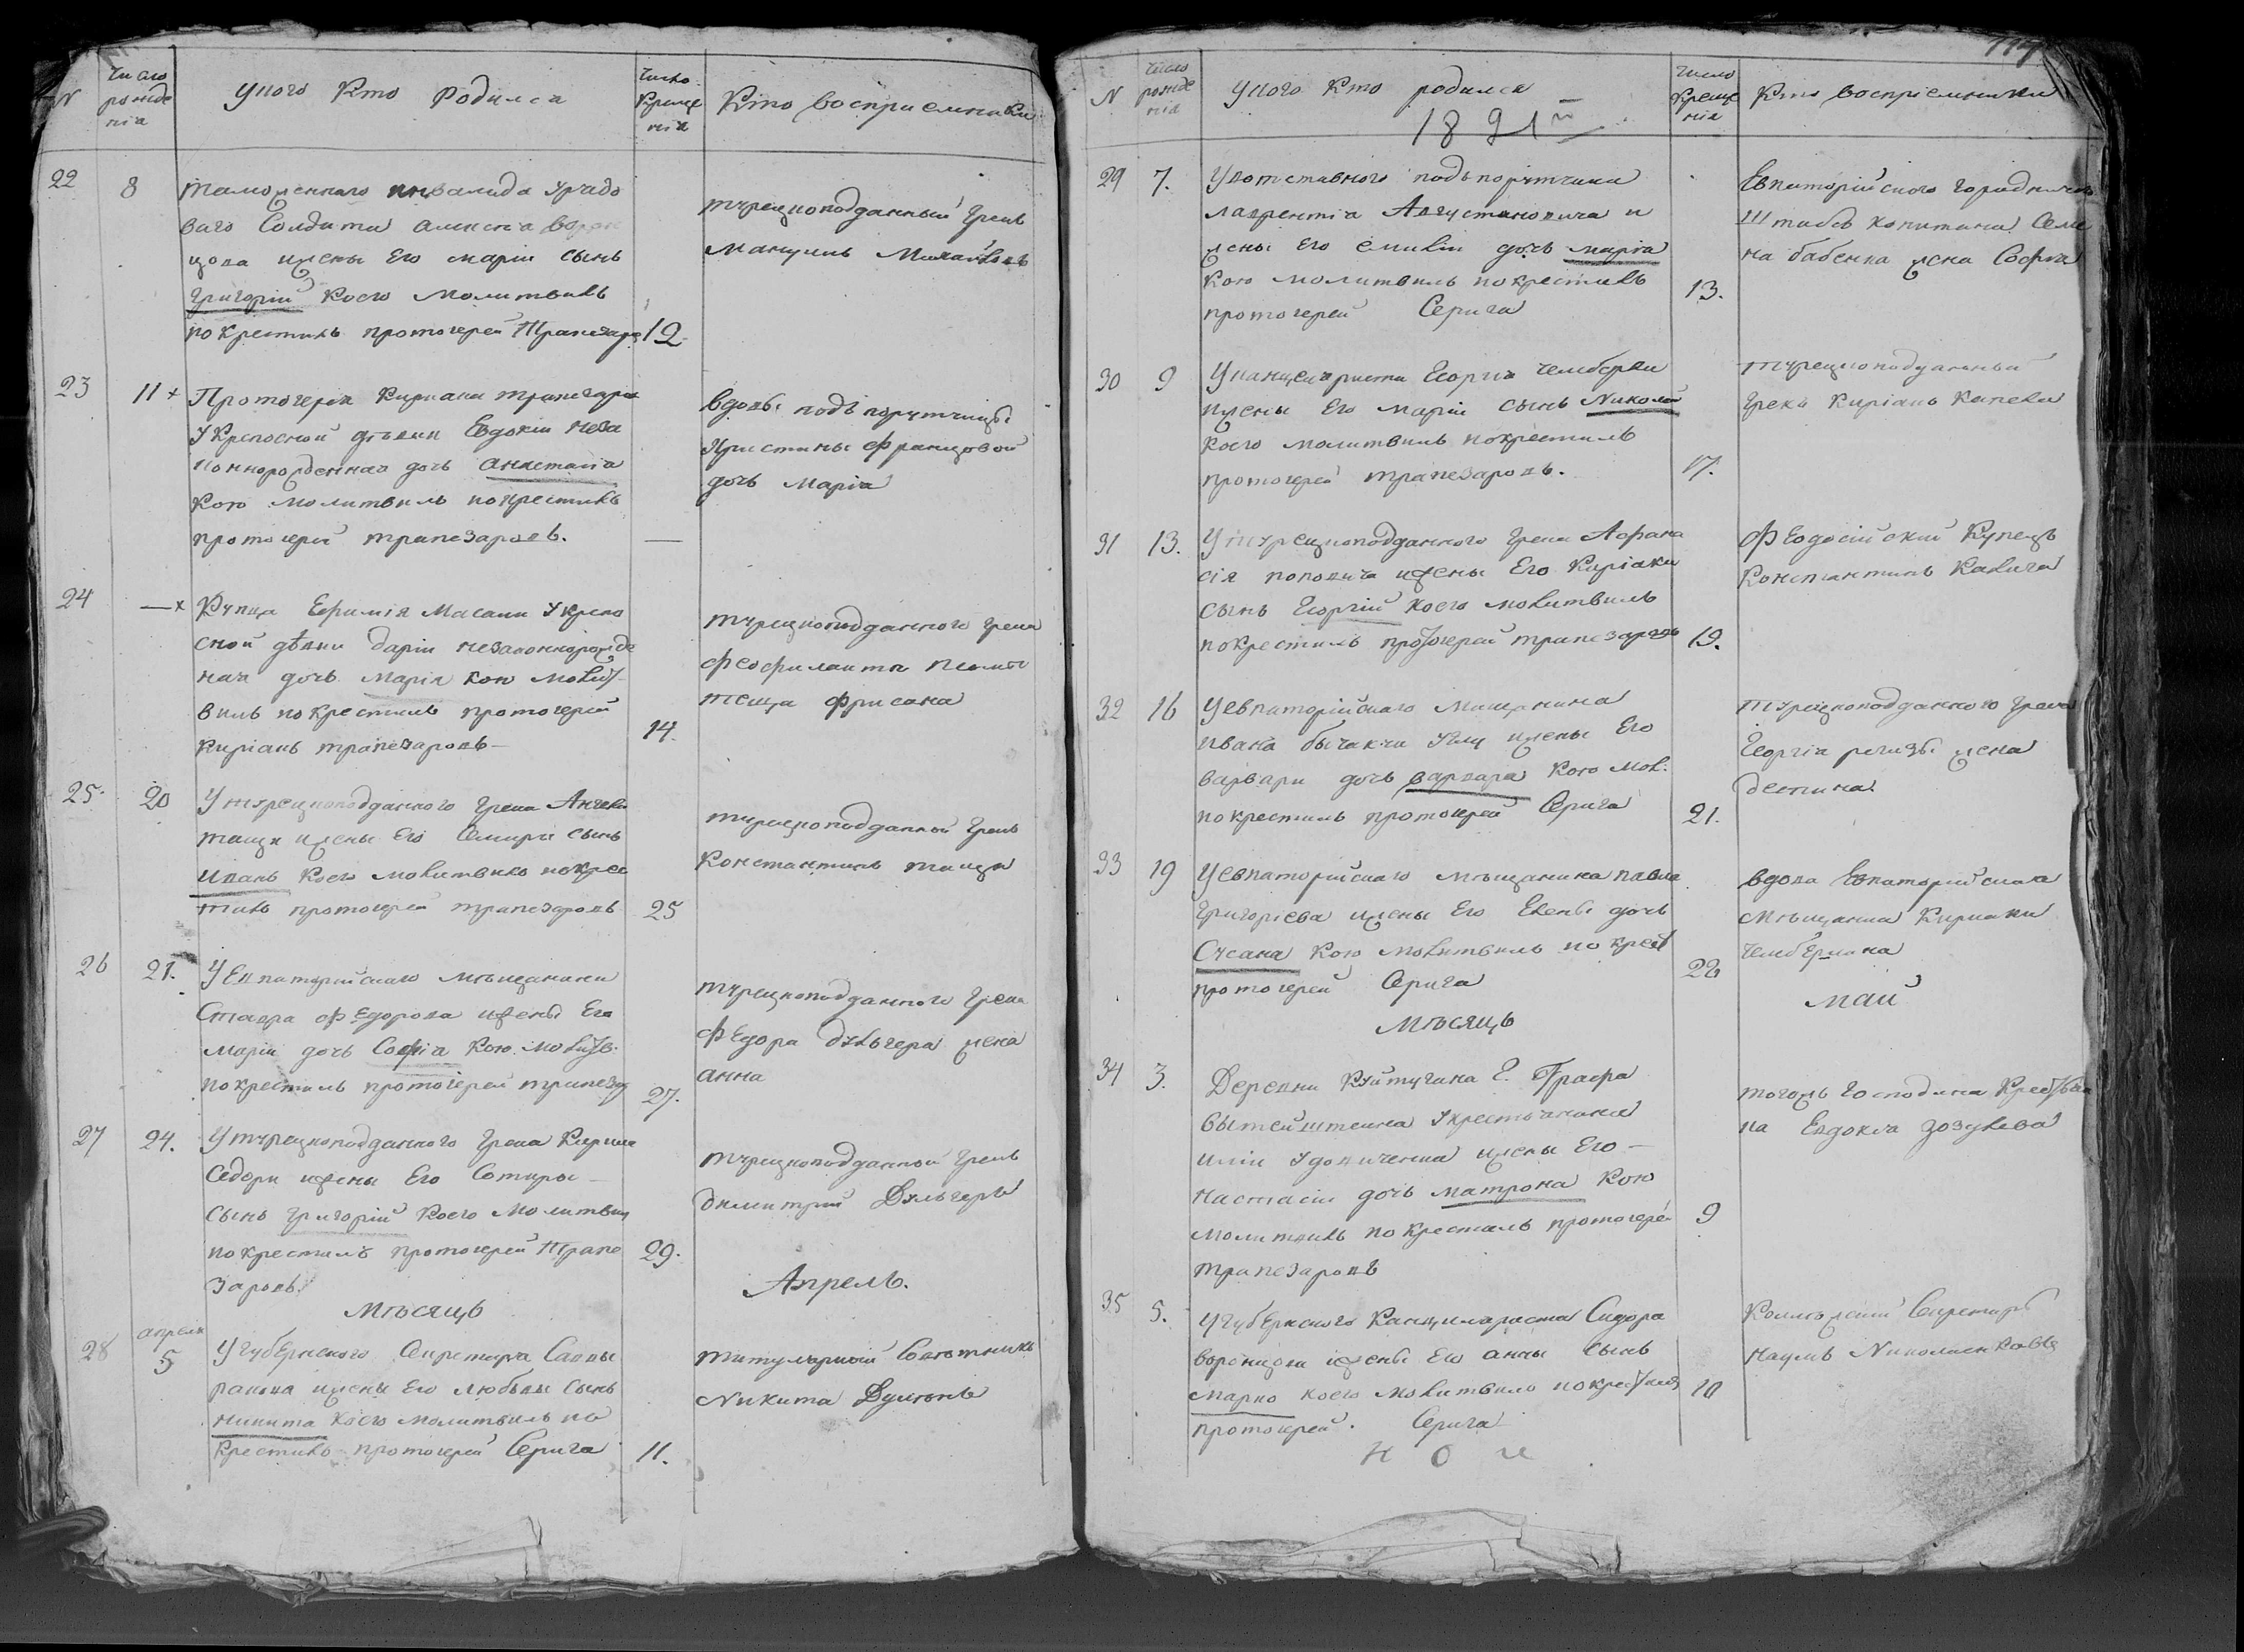 N
Число рожде нія
У кого Кто Родился
Число Креще нія
Кто восприемники
22
8
таможеннаго инвалида Урядо
ваго Солдата алексѣя
цова ижены Его маріи сынъ
Григорій Коего Молитвилъ
покрестилъ протоіерей Трапезаро
12
турецкоподданный Грекъ
Мануилъ Михайловъ
23
11 +
Протоіерея Киріака трапезарова
Укрепосной дѣвки Евдокіи Неза
коннорожденная дочь анастасія
Кою молитвилъ покрестилъ
протоіерей трапезаровъ.
—
вдовы подъ порутчицы
Христины Францовой
дочь марія
24
— х
Купца Ефимія Масали Укрепо
сной дѣвки Дарiи незаконнорожде
ная дочь Марія кою молит
вилъ покрестилъ протоіерей
Киріакъ трапезаровъ —
14.
турецкоподданного грека
Феофилакта
теща фрисана
25.
20
У турецкоподданного Грека Ангели
тацы ижены Его Самиры сынъ
Иванъ Коего молитвилъ покрес
тилъ протоіерей трапезаровъ
25
турецкоподданной Грекъ
Константинъ таицы
26
21.
У Евпаторійскаго мѣщанина
Ставра Федорова ижены Его
Маріи дочь Софія Кою молитв:
покрестилъ протоіерей трапезар
27.
турецкоподданного Грека
Федора Дульгера жена
анна
27
24.
У турецкоподданного Грека Кирила
Седори ижены Его Сотиры —
сынъ Григорій Коего Молитвил
покрестилъ протоіерей Трапе
заровъ.
29.
турецкоподданной Грекъ
димитрій Дульгеръ
Мѣсяцъ
Апрель.
28
апреля
5
У губернского Секретаря Саввы
ракова ижены Его любовы сынъ
никита Коего молитвилъ по
Крестилъ протоіерей Серига
11.
титулярной Совѣтникъ
Никита
N
Число рожде нія
У кого Кто родился
1821го
Число Креще нія
Кто воспріемники
29
7.
У вотставного подъпорутчика
лаврентія Августановича и
жены Его емиліи дочь марія
Кою молитвилъ покрестилъ
протоіерей Серига
13.
Евпаторійского городничего
Штабсъ капитана Семе
на бабенка жена Софія
30
9
У канцеляриста Георгія Чемберли
ижены Его маріи сынъ Николай
Коего молитвилъ покрестилъ
протоіерей трапезаровъ.
17.
турецкоподданный
Грекъ Киріакъ
31
13.
У турецкоподданного Грека Афана
сія поповича ижены Его Киріаки
сынъ Георгій коего молитвилъ
покрестилъ протоіерей трапезаровъ
19.
Феодосійскій Купецъ
Константинъ Кавича
32
16
У евпаторійскаго Мищанина
ивана бичакчи Углу ижены Его
варвари дочь варвара Кою мол:
покрестилъ протоіерей Серига
21.
турецкоподданного Грека
Георгія жена
деспина
33
19
У евпаторійскаго мѣщанина павла
Григоріева ижены Его Елены дочь
Сусана Кою молитвилъ покрест
протоіерей Серига
22
вдова Евпаторійскаа
мѣщанка Киріаки
Чемберлика
Мѣсяцъ
Май
34
3.
Деревни Куйтугана Г. Графа
Вытгенштеина Укрестьянина
иліи Удовиченка ижены Его —
Настасіи дочь матрона Кою
молитвилъ покрестилъ протоіерей
трапезаровъ
9
тогожъ Господина Крестьян
ка Евдокія Зозулева
35
5.
У губернского Канцеляриста Сидора
воронцова ижены Его анны Сынъ
Марко коего молитвилъ покрестилъ
протоіерей Серига
10
Коллежскій Секретарь
Наумъ Николаенковъ